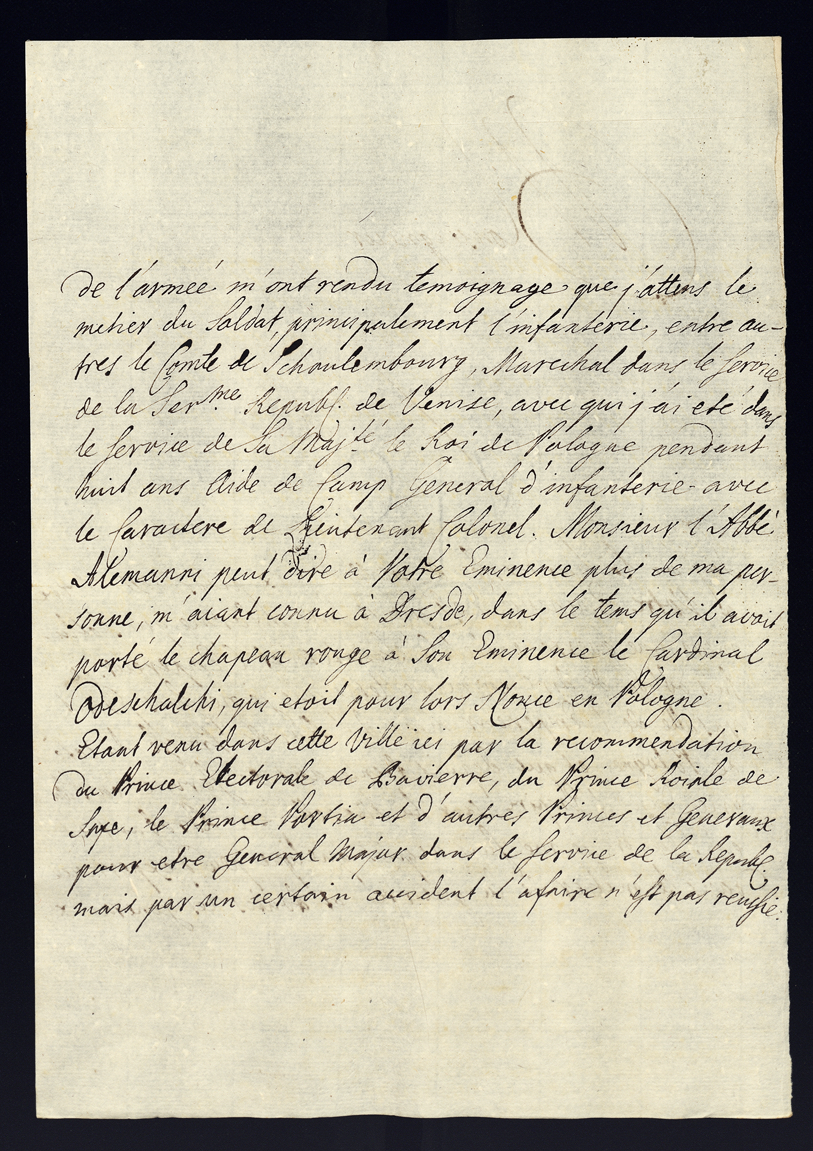 de l'armeé m'ont rendu temoignage que j'attens le
metier du Soldat, principalement l'infanterie, entre au-
tres le Comte de Schoulembourg, Marechal dans le Service
de la Ser.me Republ. de Venise, avec qui j'ai eté dans
le Service de Sa Maj.té le Roi de Pologne pendant
huit ans Aide de Camp General d'infanterie avec
le Caractere de Lieutenant Colonel. Monsieur l'Abbé
Alemanni peut dire à Votre Eminence plus de ma per-
sonne, m'aiant connu à Dresde, dans le tems qu'il avoit
porté le chapeau rouge à Son Eminence le Cardinal
Odeschalchi, qui etoit pour lors Nonce en Pologne.
Etant venu dans cette Ville ici par la recommendation
du Prince Electorale de Bavierre, du Prince Roiale de
Saxe, le Prince Portia et d'autres Princes et Generaux
pour etre General Major dans le Service de la Republ.
mais par un certain accident l'afaire n'est pas reussie.